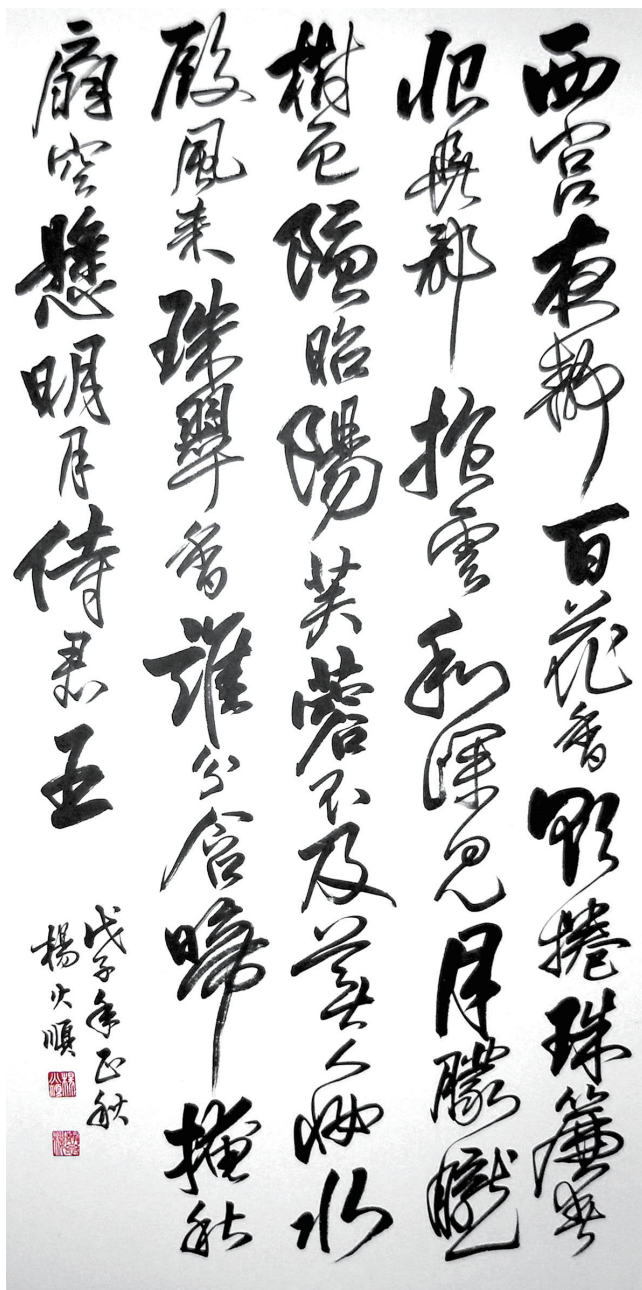 西宮夜靜百花香欲捲珠簾春
恨長斜抱雲和深見月朦朧
樹色隱昭陽芙蓉不及美人妝水
殿風來珠翠香誰分含啼掩秋
扇空懸明月待君王
戊子年正秋
楊火順